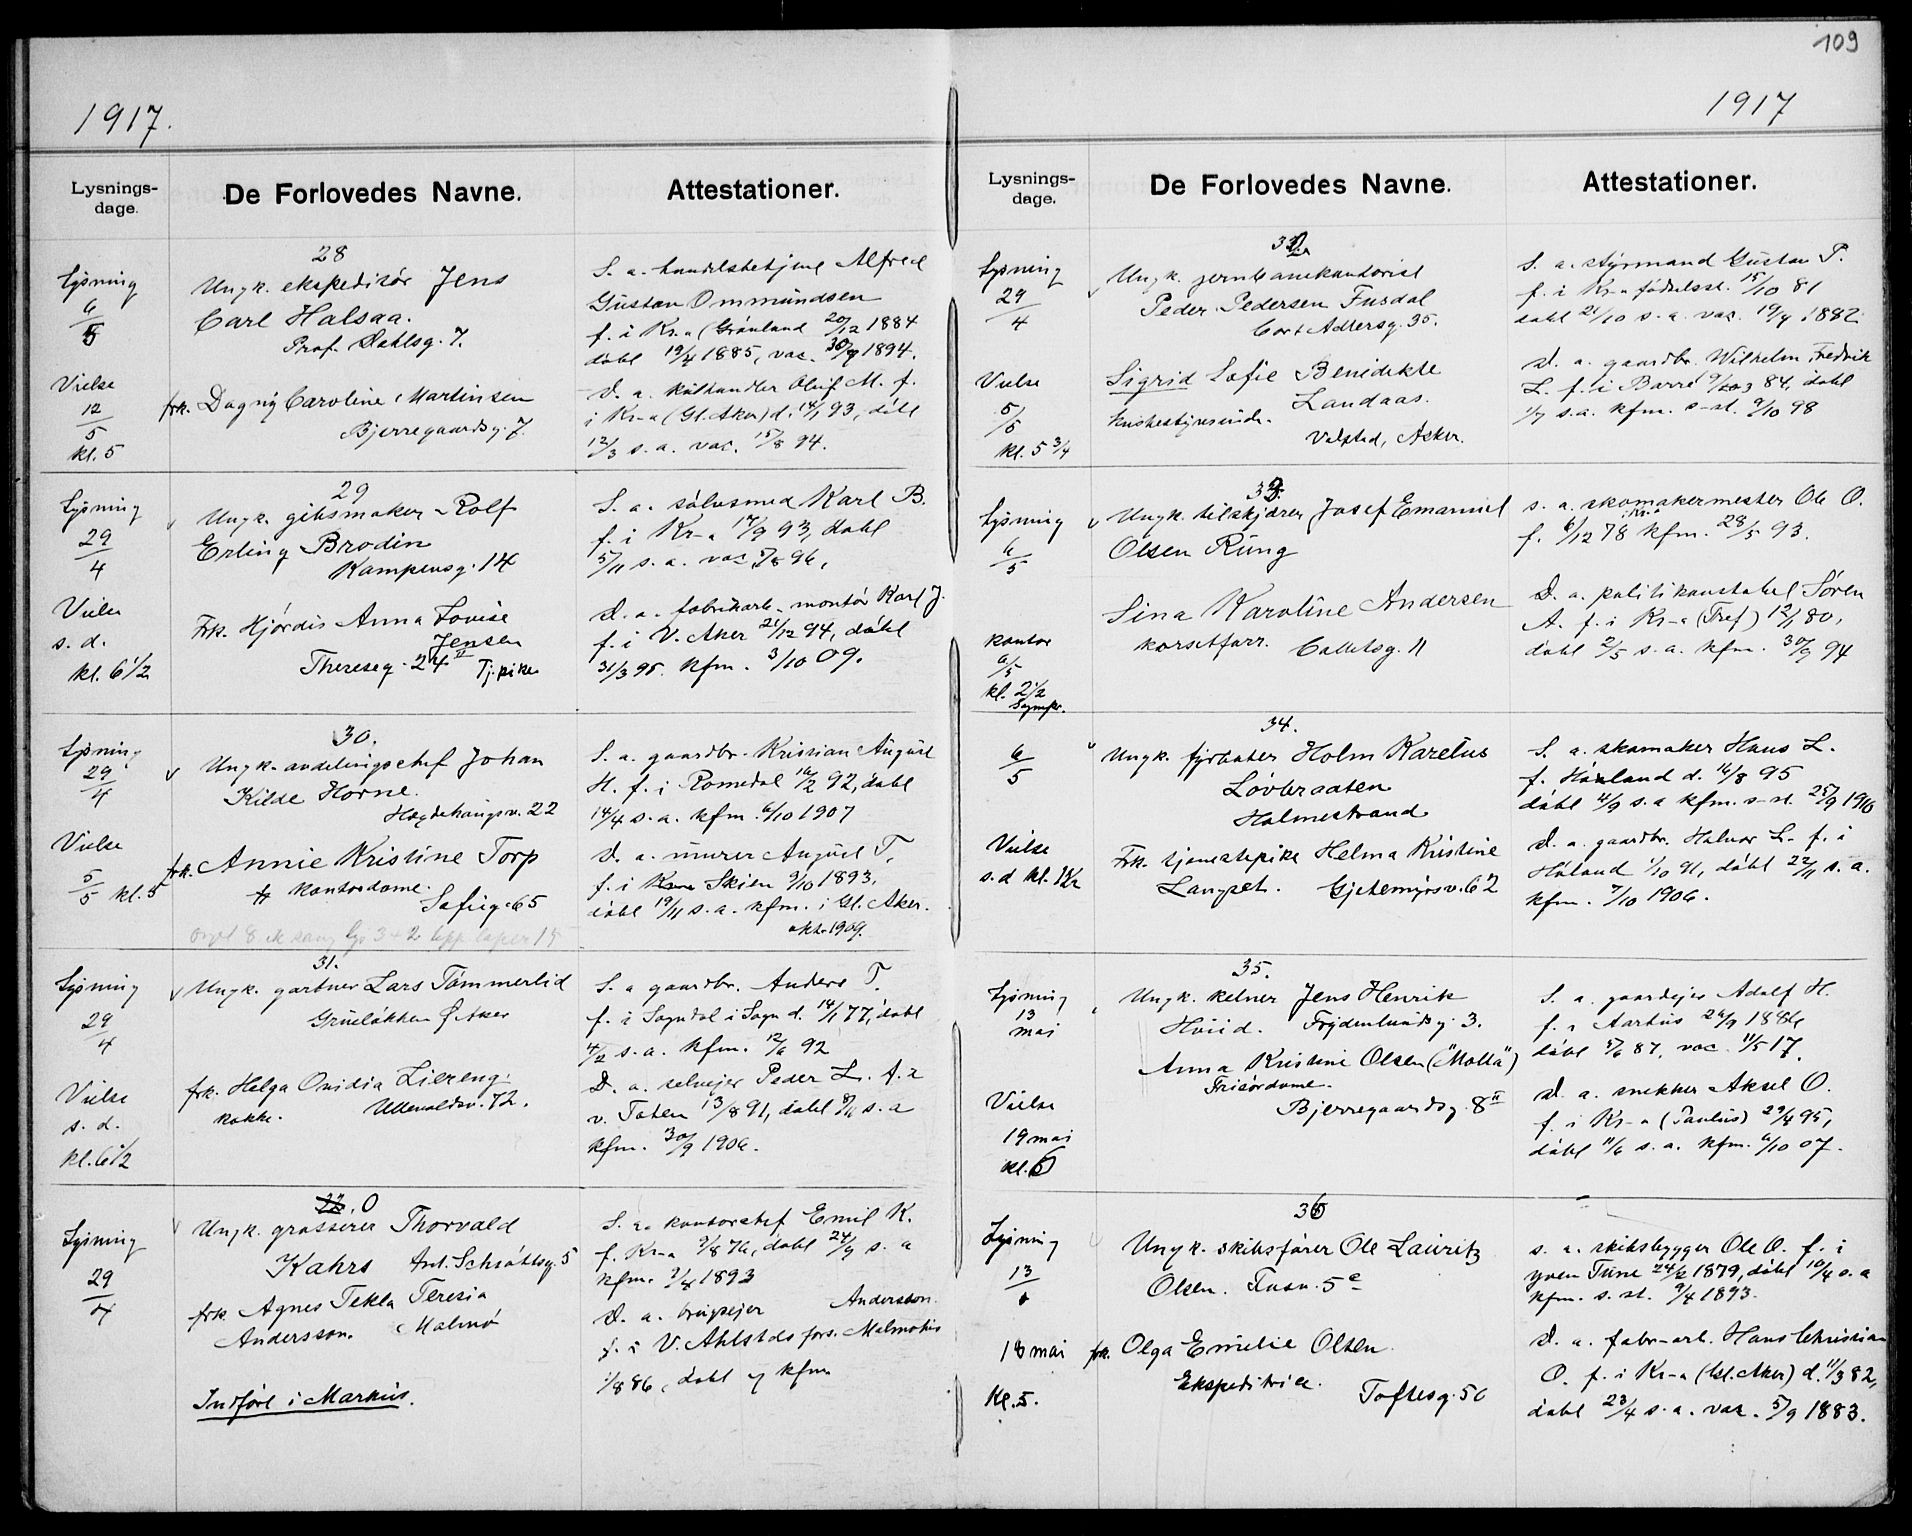 109
1917.
Lysnings-
dage.
De Forlovedes Navne.
Attestationer.
28
Lysning
6/5
Ungk. ekspeditør Jens
Carl Halsaa.
Prof. Dahlsg. 7.
S. a. handelsbetjent Alfred
Gustav Ommundsen
f. i Kr.a (Grønland 20/12 1884
døbt 19/4 1885, vac. 30/9 1894.
Vielse
12/5
kl. 5
frk. Dagny Caroline Martinsen
Bjerregaardsg. 7.
D. a. kulhandler Oluf M. f.
i Kr-a (Gl. Aker) d. 14/1 93, døbt
12/3 s. a. vac. 15/8 94.
29
Lysning
29/4
Ungk. gibsmaker Rolf
Erling Brodin
Kampensg. 14
S. a. sølvsmed Karl B.
f. i Kr-a 17/9 93, døbt
5/11 s. a. vac 5/8 96,
Vielse
s. d.
kl. 6 1/2
Frk. Hjørdis Anna Lovise
Jensen
Theresesg. 24 II Tj. pike
D. a. fabrikarb. montør Karl J.
f. i V. Aker 21/12 94, døbt
31/3 95. kfm. 3/10 09.
30.
Lysning
29/4
v Ungk. avdelingschef Johan
Kilde Horne.
Hegdehaugsv. 22
S. a. gaardbr. Kristian August
H. f. i Romedal 16/2 92, døbt
14/4 s. a. kfm. 6/10 1907
Vielse
5/5 kl. 5
frk. Annie Kristine Torp
kontordame.
Sofiesg. 65
D. a. murer August T.
f. i Skien 9/10 1893,
døbt 19/11 s. a. kfm. i Gl. Aker.
okt. 1909.
31.
Lysning
29/4
v Ungk. gartner Lars Tømmerlid
Grueløkken Ø. Aker
S. a gaardbr. Anders T.
f. i Sogndal i Sogn d. 14/1 77, døbt
4/2 s. a. kfm. 12/6 92
Vielse
s. d.
kl. 6 1/2
frk. Helga Ovidia Liereng.
kokke. Ullevoldsv. 72.
D. a. selvejer Peder L. f. i
v. Toten 13/8 91, døbt s. a
kfm. 30/9 1906.
O
Lysning
29/4
Ungk. grosserer Thorvald
Kahrs Ant. Schiøttsg. 5
S. a. kontorchef Emil K.
f. Kr-a 9/8 76, døbt 24/9 s. a
kfm. 1893
frk. Agnes Tekla Teresia
Andersson. Malmø
D. a. brugsejer Andersson.
f. i V. Ahlstds fors. Malmøhus
1/8 86, døbt og kfm
Indført i Markus.
1917
Lysnings-
dage.
De Forlovedes Navne.
Attestationer.
32.
Lysning
29/4
Ungk. jernbanekontorist
Peder Pedersen Fusdal
Cort Adlersg. 35.
S. a. styrmand Gustav P.
f. i Kr-a fødselsst. 15/10 81
døbt 21/10 s. a. vac. 19/4 1882.
Vielse
5/5
kl. 5 3/4
Sigrid Sofie Benedikte
Landaas.
husbestyrerinde.
Valstad, Asker.
D. a. gaardbr. Wilhelm Fredrik
L. f. i Borre 84, døbt
1/7 s. a. kfm. s-st. 9/10 98
33.
Lysning
6/5
v Ungk. tilskjærer Josef Emanuel
Olsen Rung
s. a. skomakermester Ole O.
f. 6/12 78 Kr.a kfm. 28/5 93.
kontor
6/5
kl. 2 1/2
Sina Karoline Andersen
korsetforr. Calletsg. 11
D. a. politikonstabel Søren
A. f. i Kr-a (Tref) 12/1 80,
døbt 2/5 s. a. kfm. 30/9 94
34.
6/5
Ungk. fyrbøter Holm Karelius
Løvbraaten
Holmestrand
S. a. skomaker Hans L.
f. Høland d. 16/8 95
døbt 11/9 s. a kfm. s-st. 25/9 1910
Vielse
s. d kl.
Frk. tjenestepike Helma Kristine
Langset. Gjetemyrsv. 62
D. a. gaardbr. Halvor L. f. i
Høland 1/10 91, døbt 22/11 s. a.
kfm. 7/10 1906.
35.
Lysning
13
mai
Ungk. kelner Jens Henrik
Hviid. Frydenlundsg. 3.
S. a. gaardejer Adolf H.
f. i Aarhus 26/9 1886
døbt 5/6 87, vac. 11/5 17.
Vielse
19 mai
kl. 6
Anna Kristine Olsen ("Molla")
Frisørdame.
Bjerregaardsg. 8 II
D. a. snekker Aksel O.
f. i Kr-a (Paulus) 29/4 95,
døbt 11/6 s. a. kfm. 6/10 07.
36
Lysning
13
Ungk. skibsfører Ole Lauritz
Olsen.
s. a. skibsbygger Ole O. f. i
Yven Tune 24/2 1879, døbt 10/4 s. a
kfm. s. st. 9/4 1893.
18 mai
Kl. 5.
frk. Olga Emilie Olsen.
Ekspeditrice.
Toftesg. 50
D. a. fabr-arb. Hans Christian
O. f. i Kr-a (Gl. Aker) d. 11/3 82,
døbt 23/4 s. a. vac. 5/9 1883.